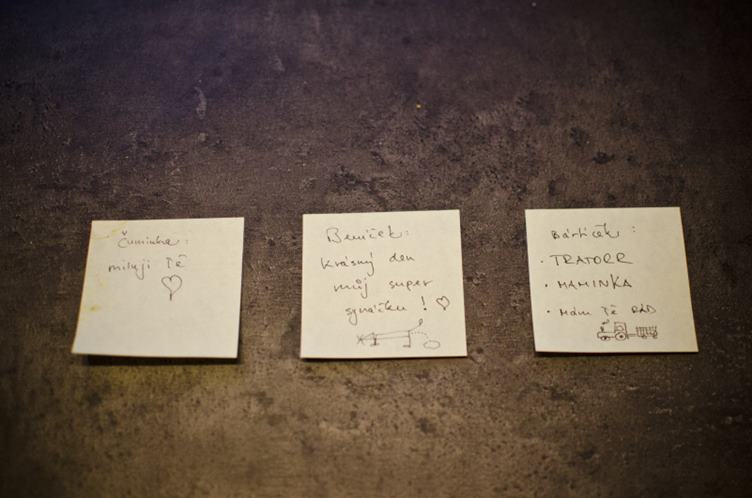 Čuminka:
miluji Tě
Beníček:
Krásný den
můj super
synáčku!
Bártíček:
• TRATORR
• MAMINKA
• Mám Tě RÁD